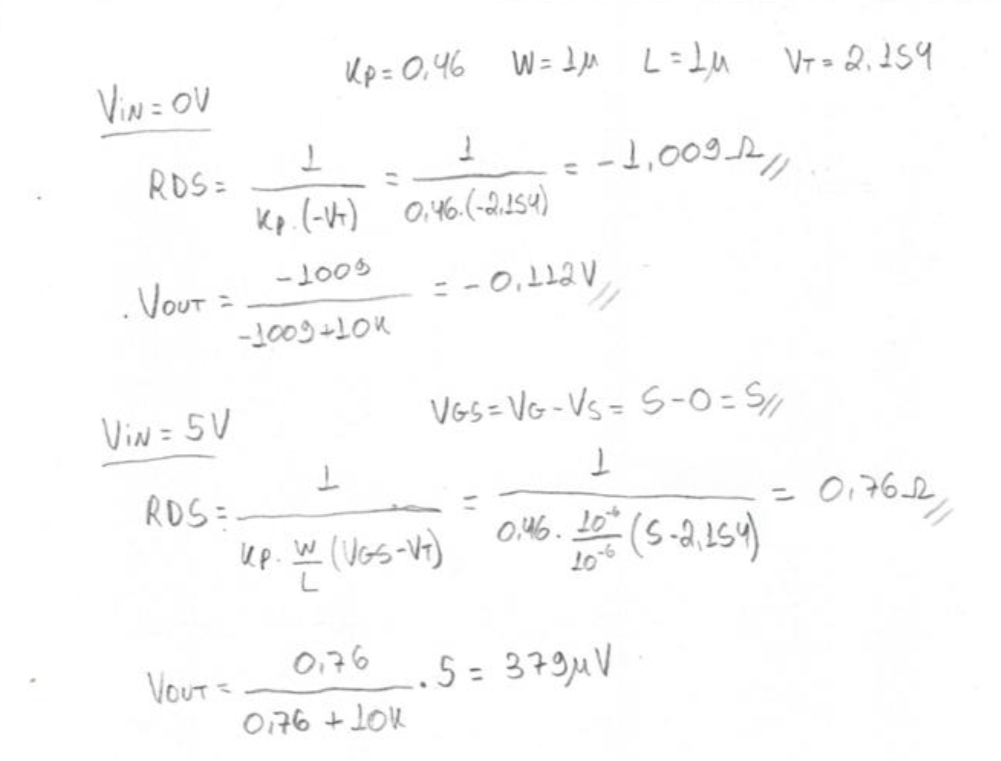 Kp = 0,46 W = 1μ L = 1μ VT = 2,154
VIN = 0V
RDS = 1 / Kp.(-VT) = 1 / 0,46.(-2,154) = -1,009Ω //
. VOUT = -1009 / -1009+10K = -0,112V //
VIN = 5V VGS = VG - VS = 5-0 = 5 //
RDS = 1 / Kp. W/L (VGS-VT) = 1 / 0,46. 10⁻⁶/10⁻⁶ (5-2,154) = 0,76Ω //
VOUT = 0,76 / 0,76 + 10K . 5 = 379μV